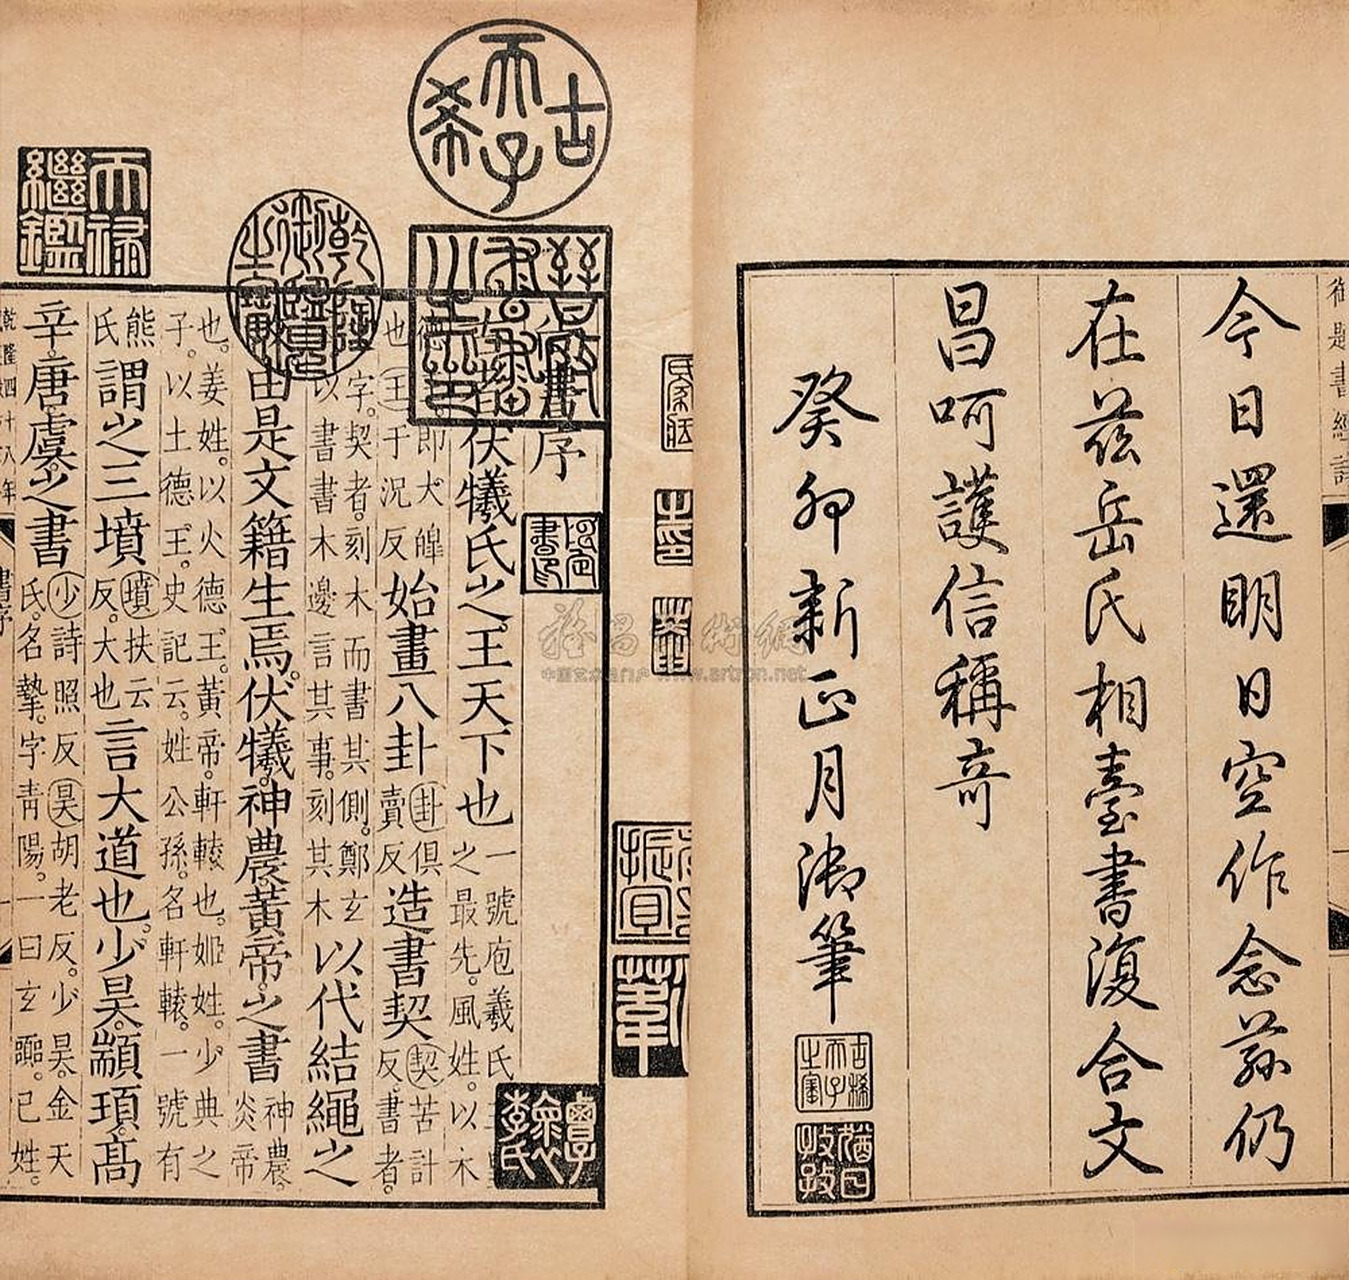 御題書經詩
今日還明日空作念茲仍
在茲岳氏相臺書復合文
昌呵護信稱奇
癸卯新正月御筆
古稀天子之寶
猶日孜孜
古稀天子
晉府書畫之印
乾隆御覽之寶
天祿繼鑑
書序
古者伏犧氏之王天下也一號庖羲氏
之最先風姓以木
德王即犬皞
也王于況反始畫八卦卦俱
賣反造書契契苦計
反書者
字契者刻木而書其側鄭玄
以書書木邊言其事刻其木以代結繩之
由是文籍生焉伏犧神農黃帝之書神農
炎帝
也姜姓以火德王黃帝軒轅也姬姓少典之
子以土德王史記云姓公孫名軒轅一號有
熊
氏謂之三墳墳扶云
反大也言大道也少昊顓頊高
辛唐虞之書少詩照反昊胡老反少昊金天
氏名摯字青陽一曰玄囂己姓
乾隆四十八年
書序
李氏
中国艺术品门户 www.artron.net